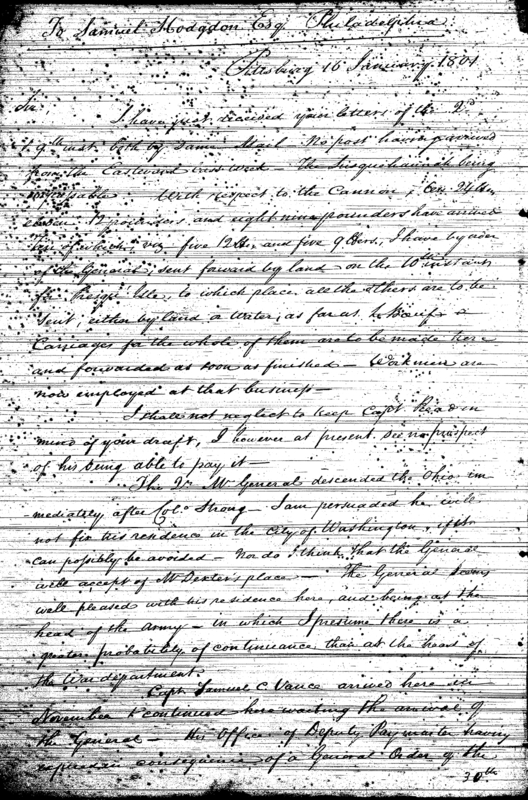 To Samuel Hodgdon Esq Philadelphia
Pittsburg 16 January 1801
Sir
I have just received your letters of the 2d
& 9th inst both by same Mail - No post having arrived
from the Eastward last Week - The Susquehannah being
impassable With respect to the Cannon, ten 24lbs
eleven 12 pounders, and eight nine pounders have arrived
ten of which viz five 12lbs, and five 9lbers, I have by order
of the General, sent forward by land on the 10th instant
for Presqu' Isle, to which place all the others are to be
sent, either by land or Water, as far as
Carriages for the whole of them are to be made here
and forwarded as soon as finished - Workmen are
now employed at that business -
I shall not neglect to keep Capt Read in
mind of your draft, I however at present see no prospect
of his being able to pay it -
The Qr Mr General descended the Ohio im
mediately after Colo Strong - I am persuaded he will
not fix his residence in the City of Washington, if it
can possibly be avoided - Nor do I think that the General
will accept of Mr Dexter's place - The General seems
well pleased with his residence here, and being at the
head of the Army - in which I presume there is a
greater probability of continuance than at the head of
the War department.
Capt Samuel C Vance arrived here in
November & continued here waiting the arrival of
the General - His Office of Deputy Paymaster having
expired in consequence of a General Order of the
30th